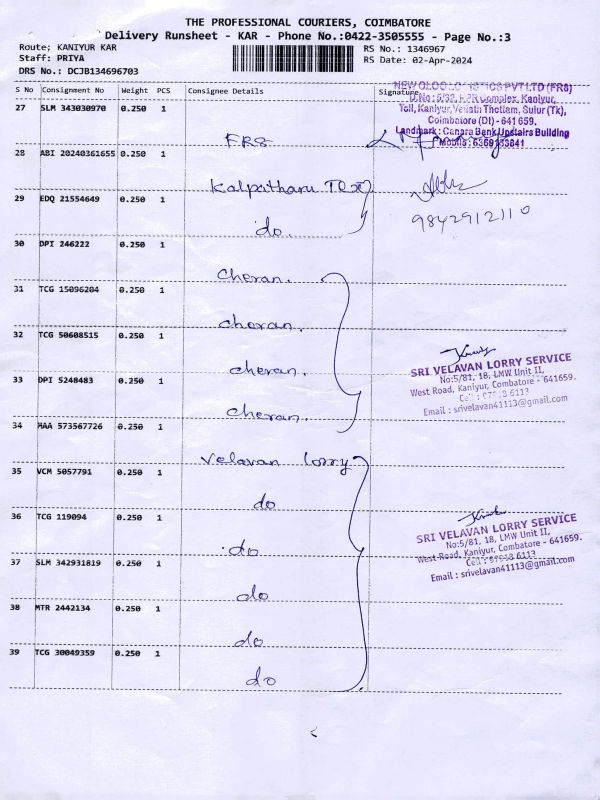 THE PROFESSIONAL COURIERS, COIMBATORE
Delivery Runsheet - KAR - Phone No.:0422-3505555 - Page No.:3
Route; KANIYUR KAR
Staff: PRIYA
DRS No.: DCJB134696703
RS No.: 1346967
RS Date: 02-Apr-2024
S No Consignment No Weight PCS Consignee Details Signature
27 SLM 343030970 0.250 1
(FR8)
Complex, Kaniyur,
Toll, Kaniyur, Thottam, Sulur (Tk),
Coimbatore (Dt) - 641 659.
Landmark: Canara Bank Upstairs Building
FR8
28 ABI 20240361655 0.250 1
Kalpatharu Tex
29 EDQ 21554649 0.250 1
do.
9842912110
30 DPI 246222 0.250 1
Cheran.
31 TCG 15096204 0.250 1
cheran.
32 TCG 50608515 0.250 1
cheran.
33 DPI 5248483 0.250 1
cheran.
SRI VELAVAN LORRY SERVICE
No:5/81, 18, LMW Unit II,
West Road, Kaniyur, Combatore - 641659.
Email : srivelavan41113@gmail.com
34 MAA 573567726 0.250 1
Velavan lorry
35 VCM 5057791 0.250 1
do
36 TCG 119094 0.250 1
do
SRI VELAVAN LORRY SERVICE
No:5/81, 18, LMW Unit II,
West Road, Kaniyur, Combatore - 641659.
Email : srivelavan41113@gmail.com
37 SLM 342931819 0.250 1
do
38 MTR 2442134 0.250 1
do
39 TCG 30049359 0.250 1
do